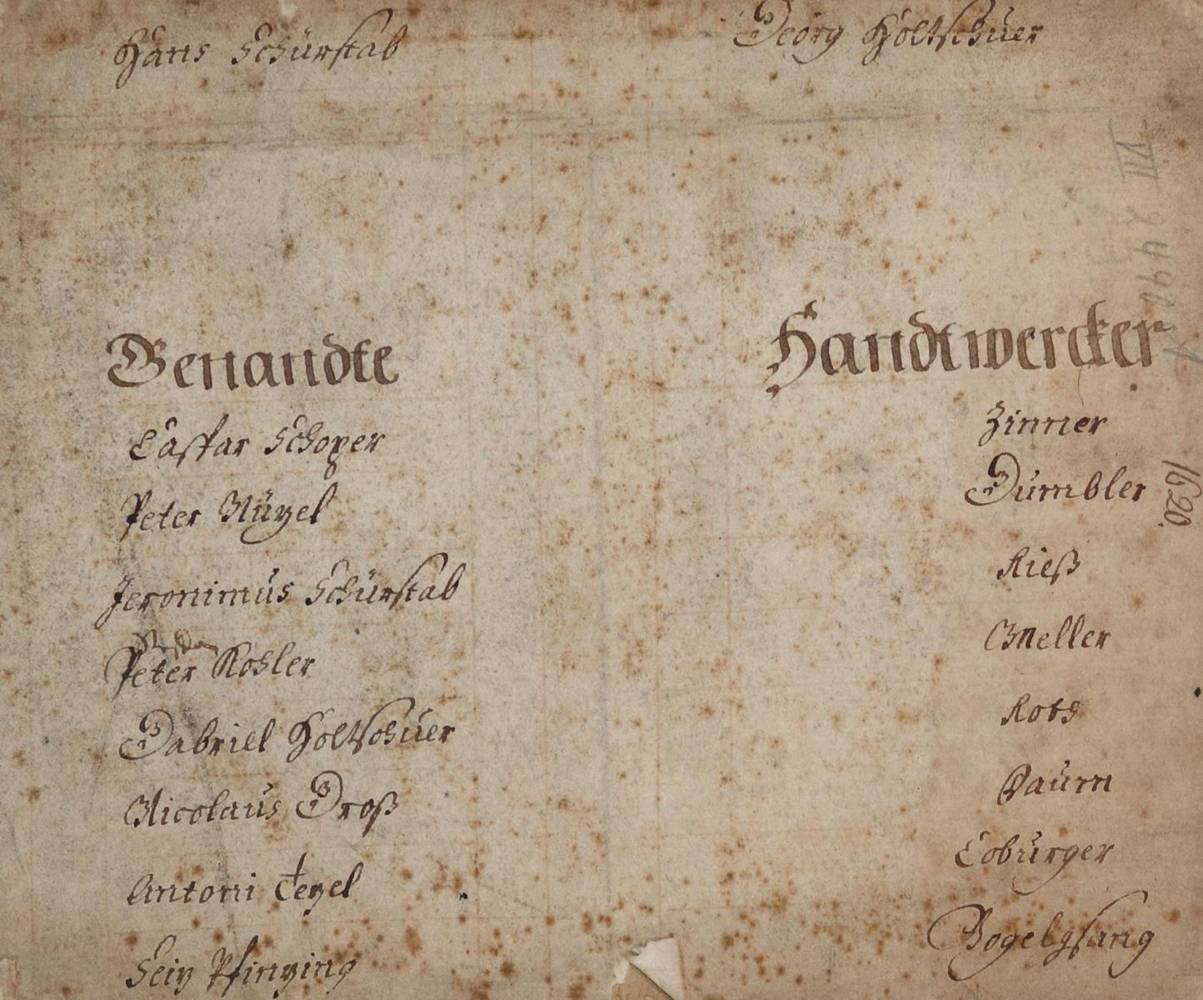 Hans Schürstab
Georg Holtschuer
Genandte
Castar Schoper
Peter Nüzel
Jeronimus Schürstab
Peter Kohler
Gabriel Holtschuer
Nicolaus Groß
Antoni Tezel
Seiz Pfinzing
Handtwercker
Zinner
Dümbler
Rieß
Meller
Roth
Baum
Coburger
Vogelgsang
1620.